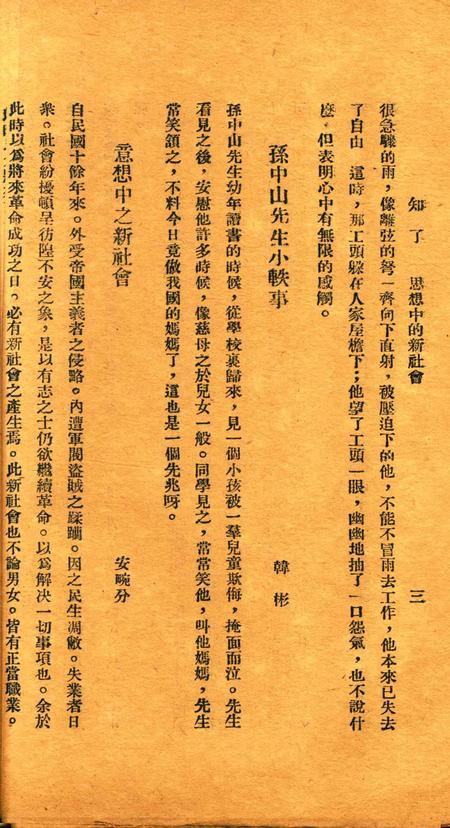 知了　思想中的新社會　三
很急驟的雨，像離弦的弩一齊向下直射，被壓迫下的他，不能不冒雨去工作，他本來已失去
了自由　這時，那工頭躲在人家屋檐下；他望了工頭一眼，幽幽地抽了一口怨氣，也不說什
麼，但表明心中有無限的感觸。
孫中山先生小軼事　韓彬
孫中山先生幼年讀書的時候，從學校裏歸來，見一個小孩被一羣兒童欺侮，掩面而泣。先生
看見之後，安慰他許多時候，像慈母之於兒女一般。同學見之，常常笑他，叫他媽媽，先生
常笑頷之，不料今日竟做我國的媽媽了，這也是一個先兆呀。
意想中之新社會　安畹分
自民國十餘年來。外受帝國主義者之侵略。內遭軍閥盜賊之蹂躪。因之民生凋敝。失業者日
衆。社會紛擾頓呈彷徨不安之象，是以有志之士仍欲繼續革命。以爲解决一切事項也。余於
此時以爲將來革命成功之日。必有新社會之產生焉。此新社會也不論男女。皆有正當職業。